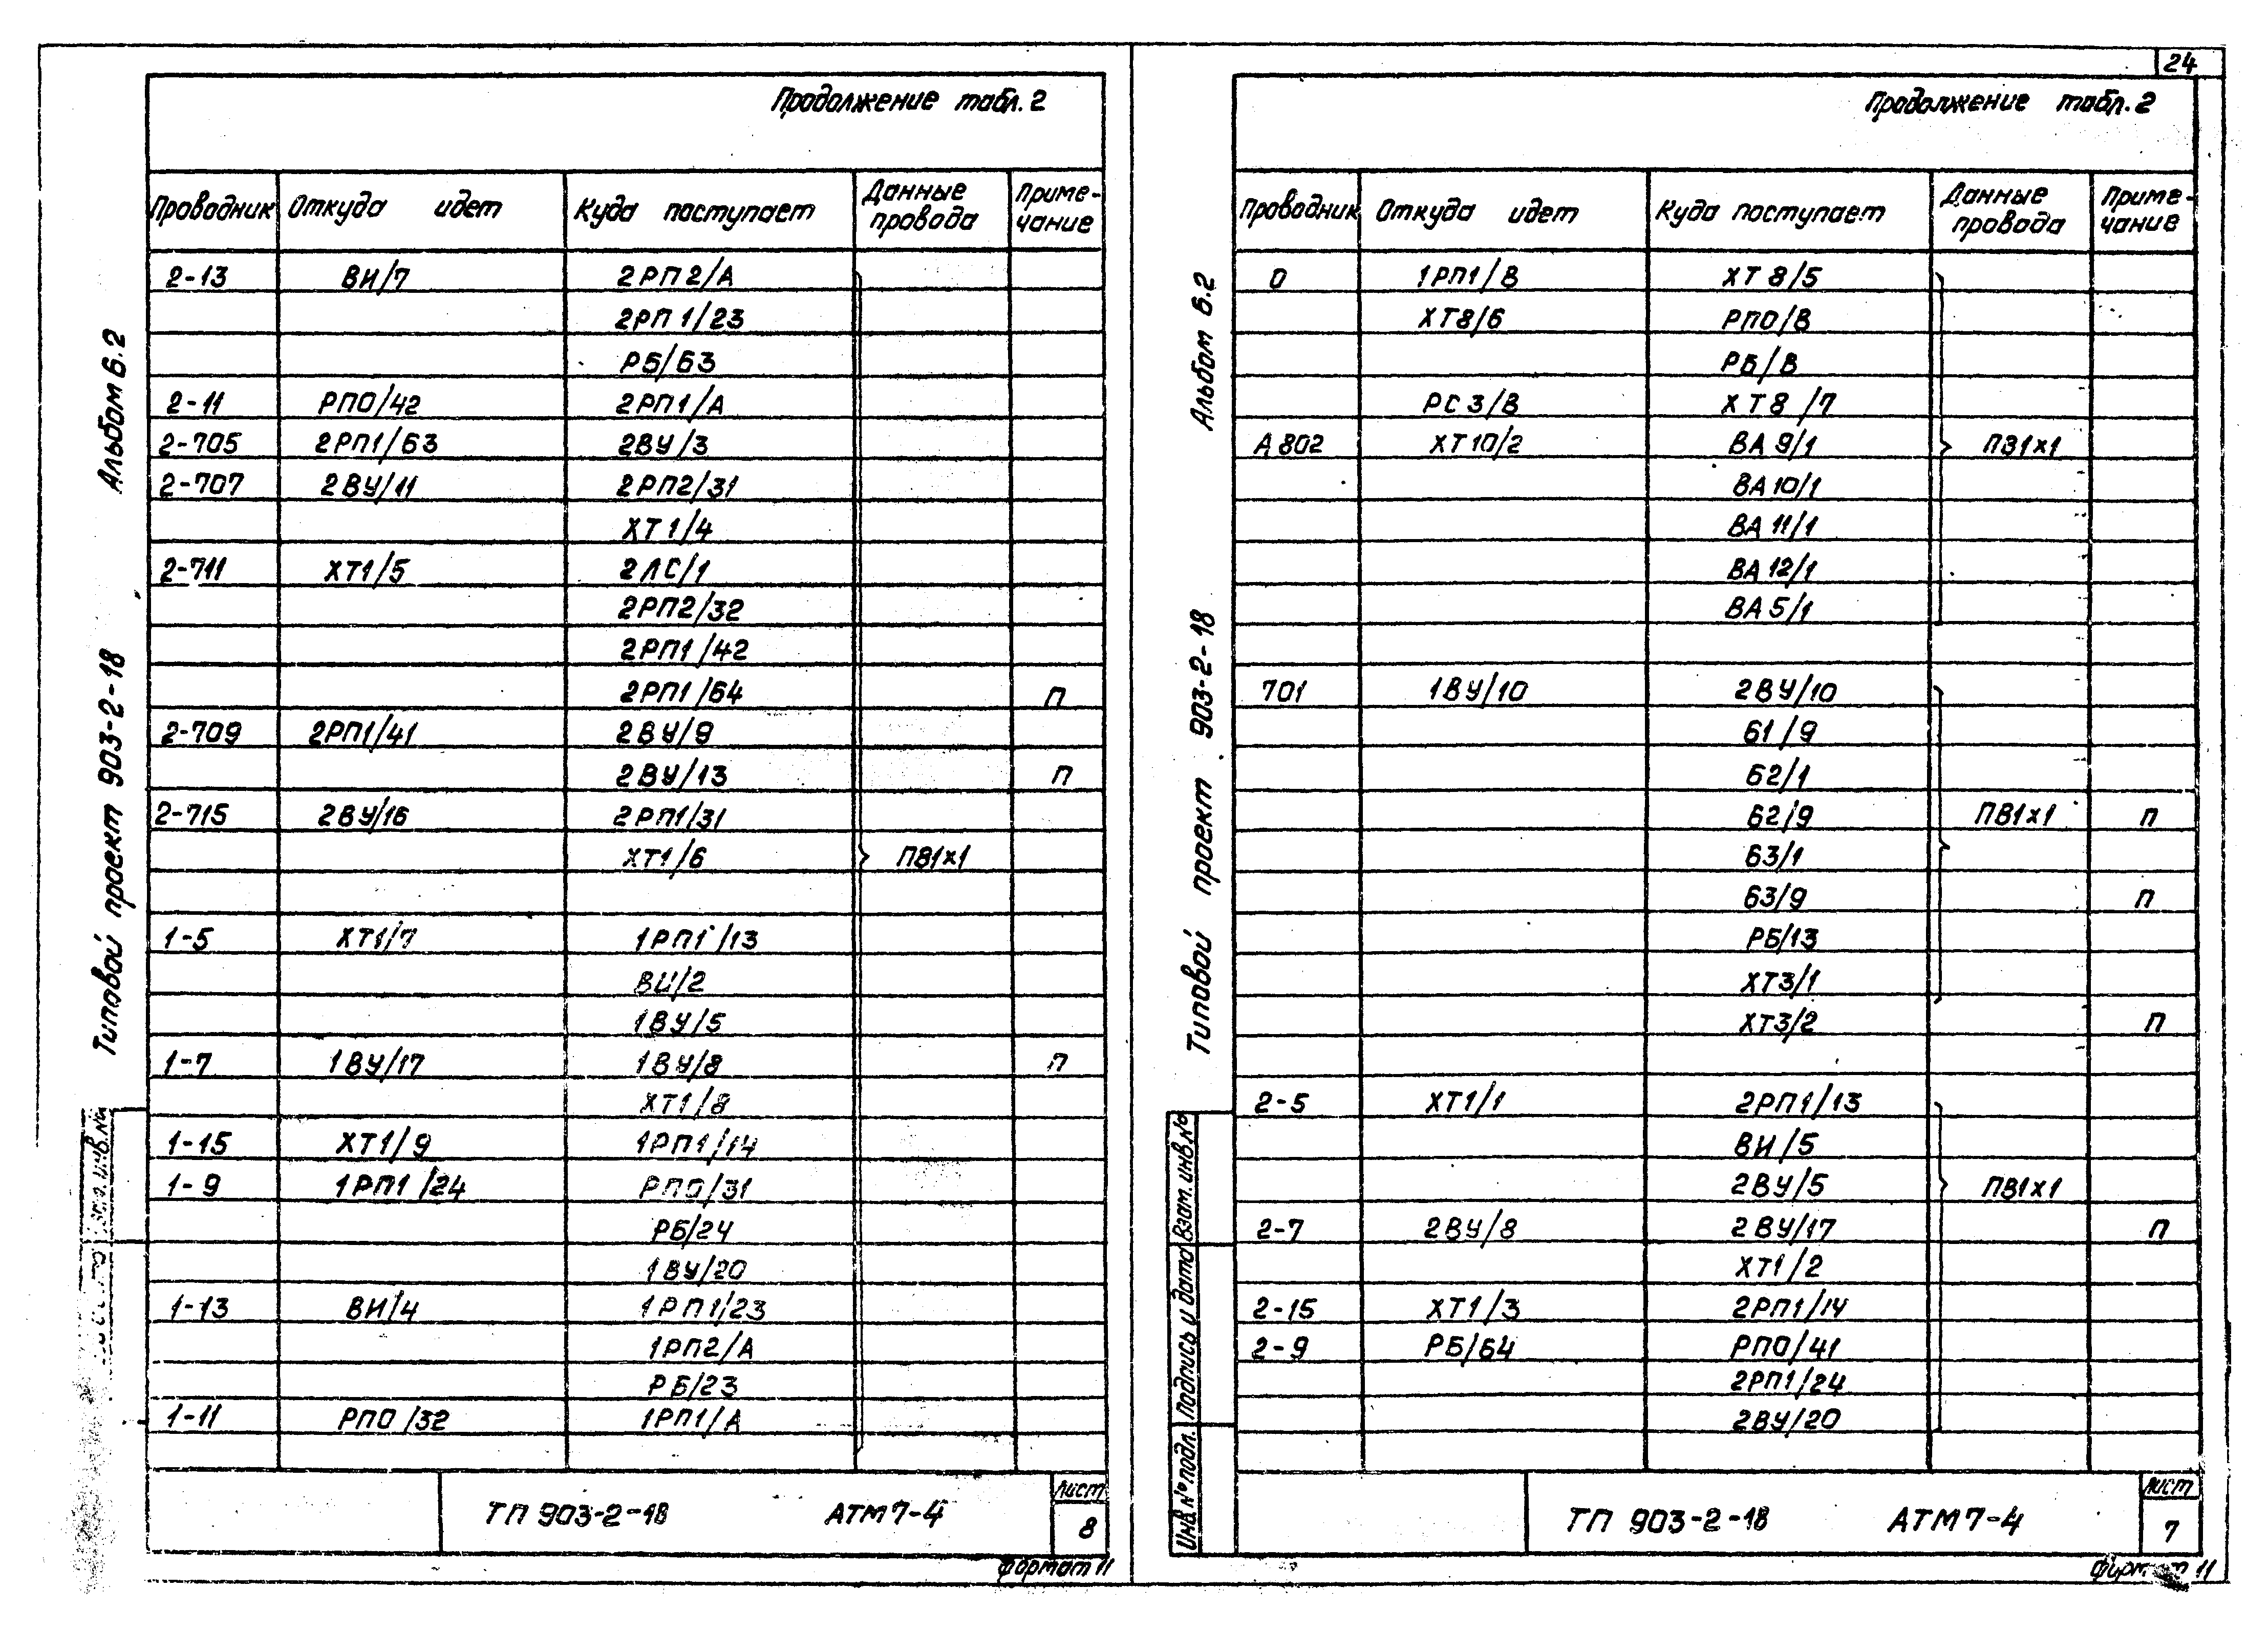 24
Продолжение табл. 2
Проводник Откуда идет Куда поступает Данные провода Приме- чание
2-13 ВИ/7 2РП2/А
2РП1/23
РБ/63
2-11 РПО/42 2РП1/А
2-705 2РП1/63 2ВУ/3
2-707 2ВУ/11 2РП2/31
ХТ1/4
2-711 ХТ1/5 2ЛС/1
2РП2/32
2РП1/42
2РП1/64 П
2-709 2РП1/41 2ВУ/9
2ВУ/13 П
2-715 2ВУ/16 2РП1/31
ХТ1/6 ПВ1х1
1-5 ХТ1/7 1РП1/13
ВИ/2
1ВУ/5
1-7 1ВУ/17 1ВУ/8 П
ХТ1/8
1-15 ХТ1/9 1РП1/14
1-9 1РП1/24 РПО/31
РБ/24
1ВУ/20
1-13 ВИ/4 1РП1/23
1РП2/А
РБ/23
1-11 РПО/32 1РП1/А
ТП 903-2-18 АТМ7-4
Лист
8
Формат 11
Альбом 6.2
Типовой проект 903-2-18
Продолжение табл. 2
Проводник Откуда идет Куда поступает Данные провода Приме- чание
0 1РП1/В ХТ8/5
ХТ8/6 РПО/В
РБ/В
РС3/В ХТ8/7
А802 ХТ10/2 ВА9/1 ПВ1х1
ВА10/1
ВА11/1
ВА12/1
ВА5/1
701 1ВУ/10 2ВУ/10
Б1/9
Б2/1
Б2/9 ПВ1х1 П
Б3/1
Б3/9 П
РБ/13
ХТ3/1
ХТ3/2 П
2-5 ХТ1/1 2РП1/13
ВИ/5
2ВУ/5 ПВ1х1
2-7 2ВУ/8 2ВУ/17 П
ХТ1/2
2-15 ХТ1/3 2РП1/14
2-9 РБ/64 РПО/41
2РП1/24
2ВУ/20
ТП 903-2-18 АТМ7-4
Лист
7
Альбом 6.2
Типовой проект 903-2-18
Взам. инв.№
Подпись и дата
Инв.№ подл.